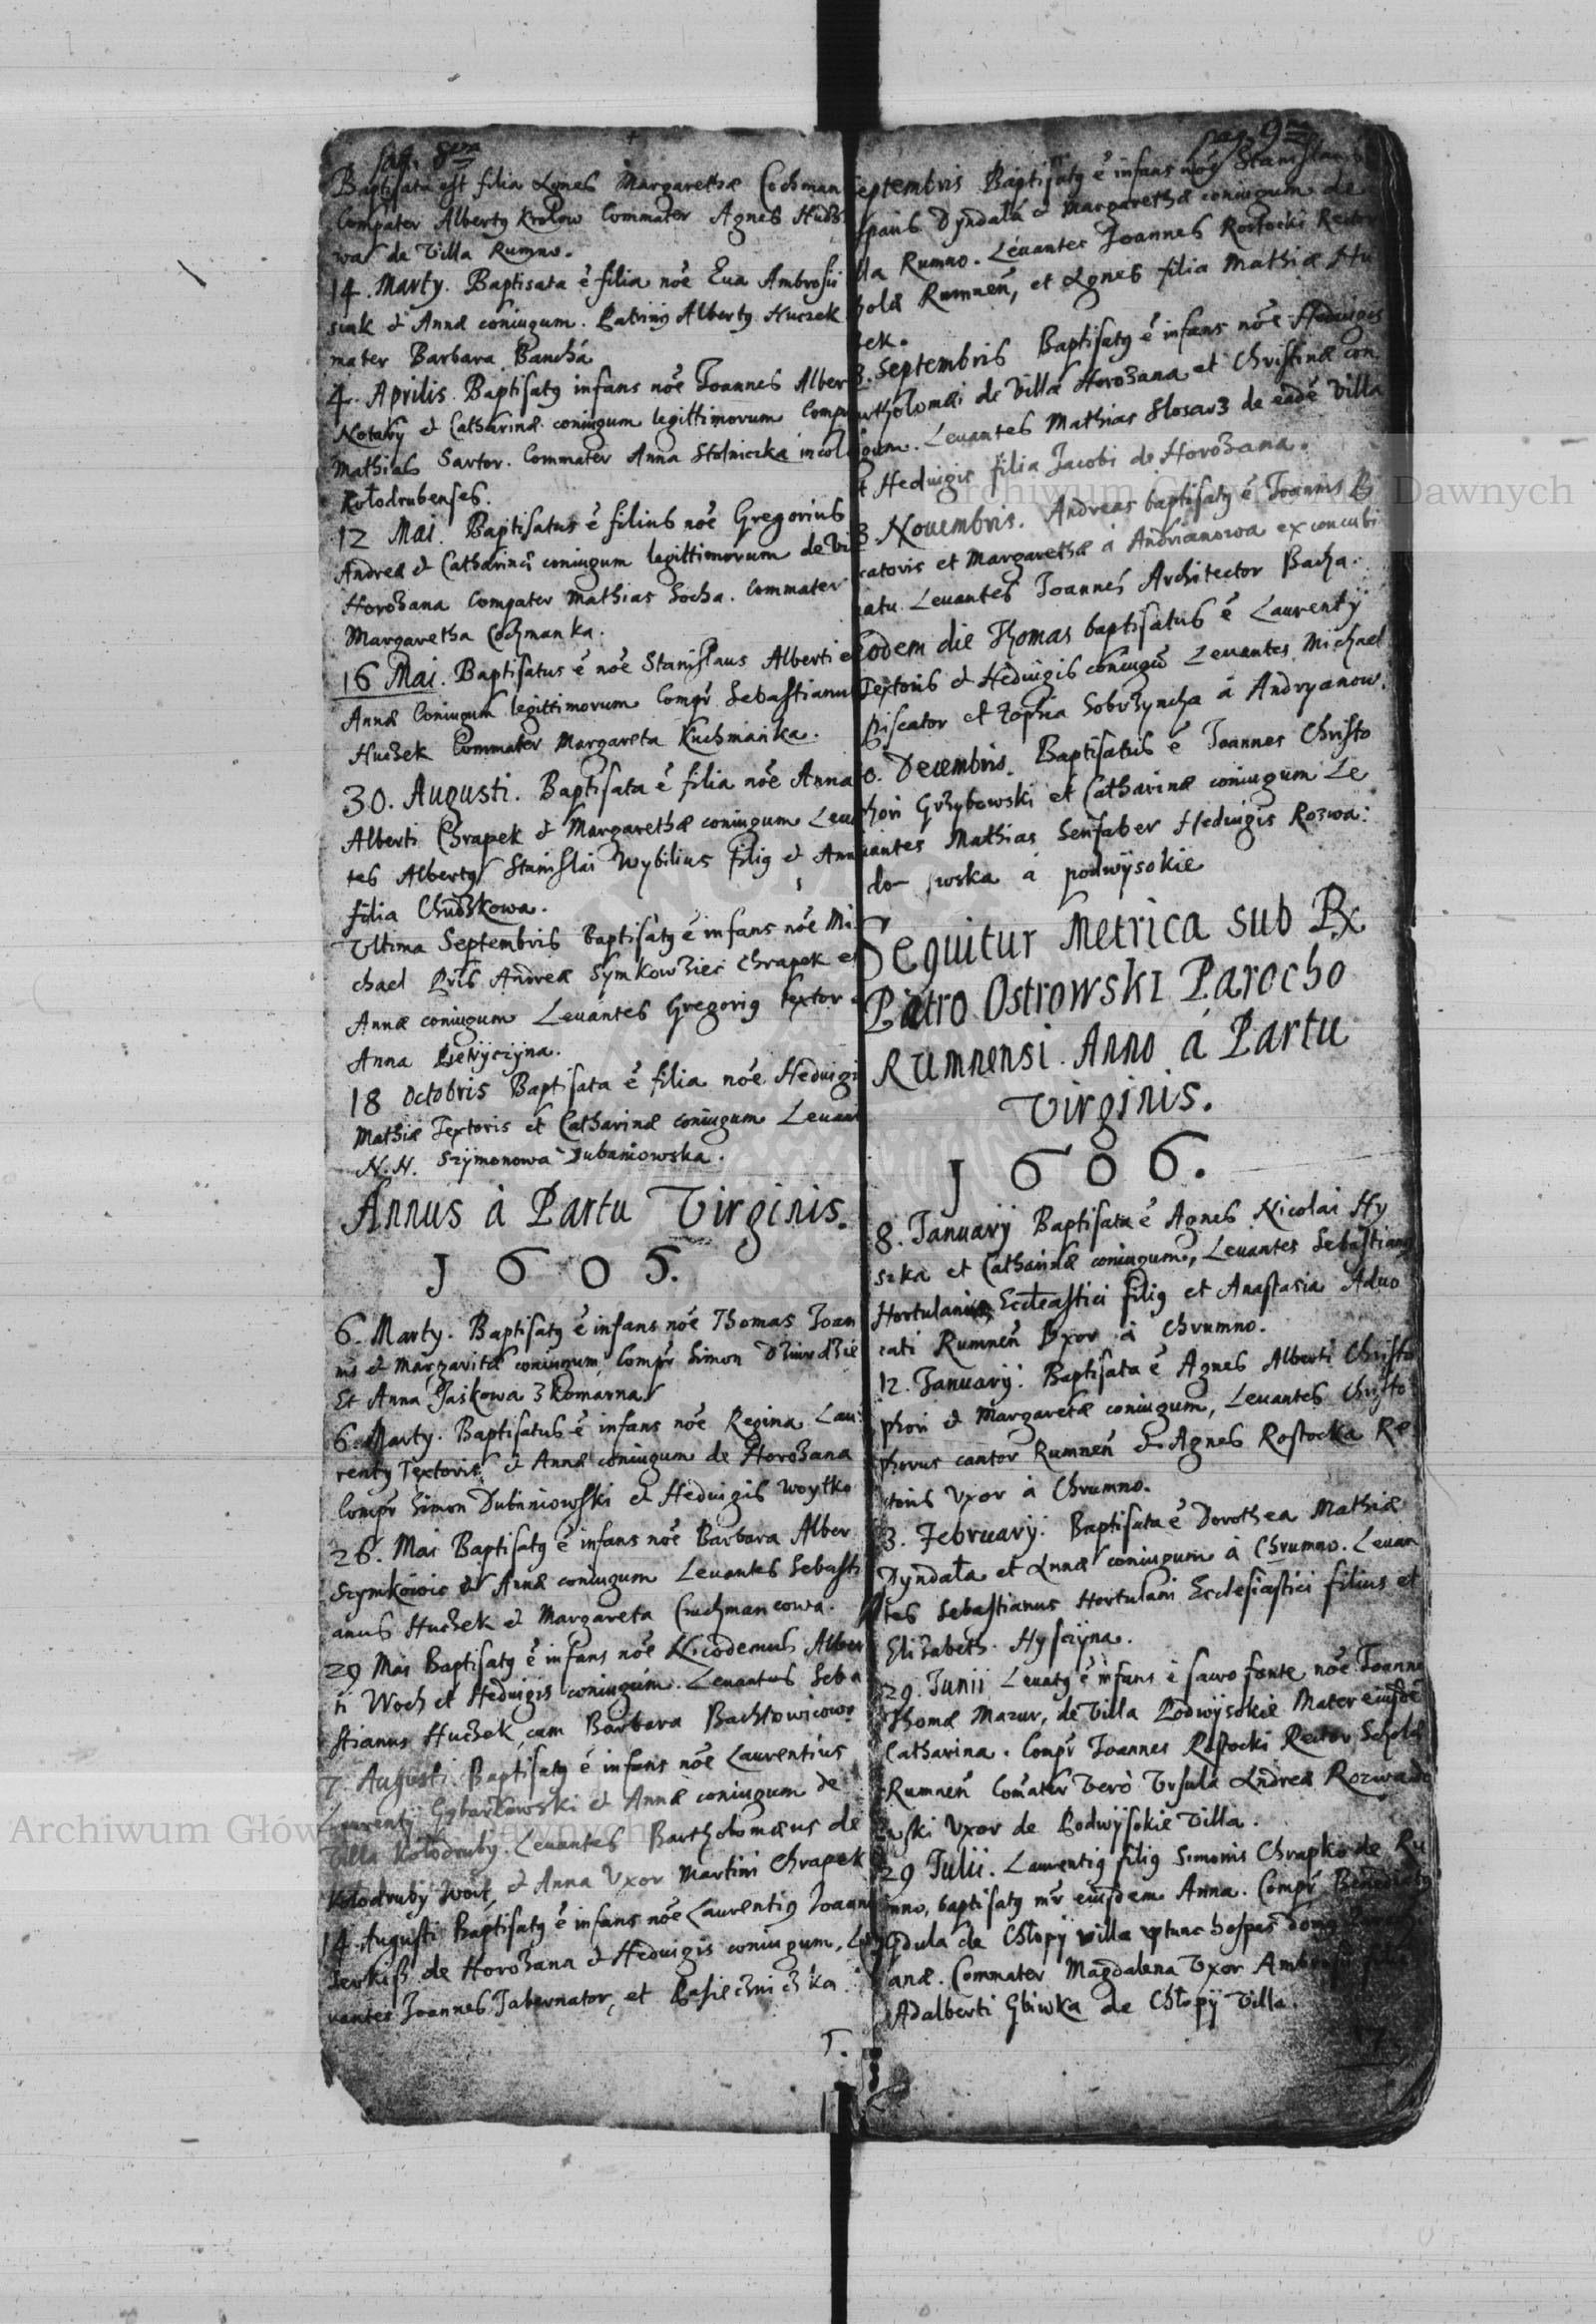 pag. 8va
Baptisata est filia Agnes Margarethæ Cochman
Compater Albertꝯ Krolow Commater Agnes Hudz
wa de Villa Rumno.
14. Marty. Baptisata ē filia nōe Eua Ambrosii
siak & Annæ coniugum. Patrinꝯ Albertꝯ Huczek
mater Barbara Banchá
4. Aprilis. Baptisatꝯ infans nōe Joannes Alber
Notarÿ & Catharinæ coniugum legittimorum Comp
Mathias Sartor. Commater Anna Stolniczka incol
Kołodrubenses.
12 Mai. Baptisatus ē filius nōe Gregorius
Andreæ & Catharinæ coniugum legittimorum de Vi
Horożana Compater Mathias Socha. Commater
Margaretha Cochmanka.
16 Mai. Baptisatus ē nōe Stanislaus Alberti e
Annæ Coniugum legittimorum Compr Sebastianu
Huczek Commater Margareta Kuchmanka.
30. Augusti. Baptisata ē filia nōe Anna
Alberti Chrapek & Margarethæ coniugum Leua
tes Albertꝯ Stanislai Wybilius filiꝯ & Ann
filia Chudzkowa.
Vltima Septembris Baptisatꝯ ē infans nōe Mi
chael Pris Andreæ Symkowziec Chrapek et
Annæ coniugum Leuantes Gregoriꝯ textor
Anna
18 Octobris Baptisata ē filia nōe Heduigi
Mathiæ Textoris et Catharinæ coniugum Leuant
N. N. Szymonowa Dubaniowska.
Annus à Partu Virginis.
1605.
6. Marty. Baptisatꝯ ē infans nōe Thomas Joan
nis & Margaritæ coniugum Compr Simon Dziurdzie
Et Anna Jaskowa z Komarna
6. Marty. Baptisatus ē infans nōe Regina Lau
rentÿ Textoris & Annæ coniugum de Horożana
Compr Simon Dubaniowski & Heduigis Woytko
26. Mai Baptisatꝯ ē infans nōe Barbara Alber
Szymkowic & Annæ coniugum Leuantes Sebasti
anus Huczek & Margareta Cuchmancowa.
29 Mai Baptisatꝯ ē infans nōe Nicodemus Alber
ti Woch et Heduigis coniugum. Leuantes Seba
stianus Huczek, cum Barbara Bachtowicowa
7. Augusti. Baptisatꝯ ē infans nōe Laurentius
Laurentÿ Gębarkowski & Annæ coniugum de
Villa Kołodruby. Leuantes Bartholomæus de
Kołodruby Woit, & Anna Vxor Martini Chrapek
14. Augusti Baptisatꝯ ē infans nōe Laurentiꝯ Joann
Jerkiß de Horożana & Heduigis coniugum, Le
uantes Joannes Tabernator, et
pag. 9na
eptembris Baptisatꝯ ē infans nōe Stanislaus
Dyndała & Margarethæ coniugum de
lla Rumno. Leuantes Joannes Rostocki Recto
holæ Rumneñ, et Agnes filia Mathiæ Hu
zek.
3. Septembris Baptisatꝯ ē infans nōe Heduiges
artholomæi de Villa Horożana et Christinæ con
gum. Leuantes Mathias Slosarz de eadē Villa
t Heduigis filia Jacobi de Horożana.
3. Nouembris. Andreas baptisatꝯ ē Joannis Pi
catoris et Margarethæ à Andrianowa ex concubi
atu Leuantes Joannes Architector Bacha.
Eodem die Thomas baptisatus ē Laurentÿ
Textoris & Heduigis coniugū Leuantes Michael
Piscator et Zophia Sobrzyncha à Andryanow.
0. Decembris. Baptisatus ē Joannes Christo
phori Grzybowski et Catharinæ coniugum Le
uantes Mathias Serifaber Heduigis Rozwa:
do- wska à podwÿsokie
Sequitur Metrica sub Rx
Pietro Ostrowski Parocho
Rumnensi. Anno à Partu
Virginis.
1606.
8. Januarÿ Baptisata ē Agnes Nicolai Hy
szka et Catharinæ coniugum, Leuantes Sebastianꝯ
Hortulani Eccleastici filiꝯ et Anastasia Aduo
cati Rumneñ Vxor à Chrumno.
12. Januarÿ. Baptisata ē Agnes Alberti Christo
phori & Margaretæ coniugum, Leuantes Christo
phorus cantor Rumneñ & Agnes Rostocka Re
ctoris Vxor à Chrumno.
3. Februarÿ. Baptisata ē Dorothea Mathiæ
Dyndała et Annæ coniugum à Chrumno. Leuan
tes Sebastianus Hortulani Ecclesiastici filius et
Elizabeth Hysczyna.
29. Junii Leuatꝯ ē infans è sacro fonte nōe Joanne
Thomæ Mazur, de Villa Podwÿsokie Mater eiusdē
Catharina. Compr Joannes Rostocki Rector Scholæ
Rumneñ Comater Verò Vrsula Andreæ Rozwado
wski Vxor de Podwÿsokie Villa.
29 Julii. Laurentiꝯ filiꝯ Simonis Chrapko de Ru
mno, baptisatꝯ mr eiusdem Anna. Compr Benedictꝯ
Gdula de Chłopÿ villa ptunc hospes
anæ. Commater Magdalena Vxor Ambrosii
Adalberti Gliwka de Chłopÿ Villa.
Archiwum Główne Akt Dawnych
Archiwum Główne Akt Dawnych